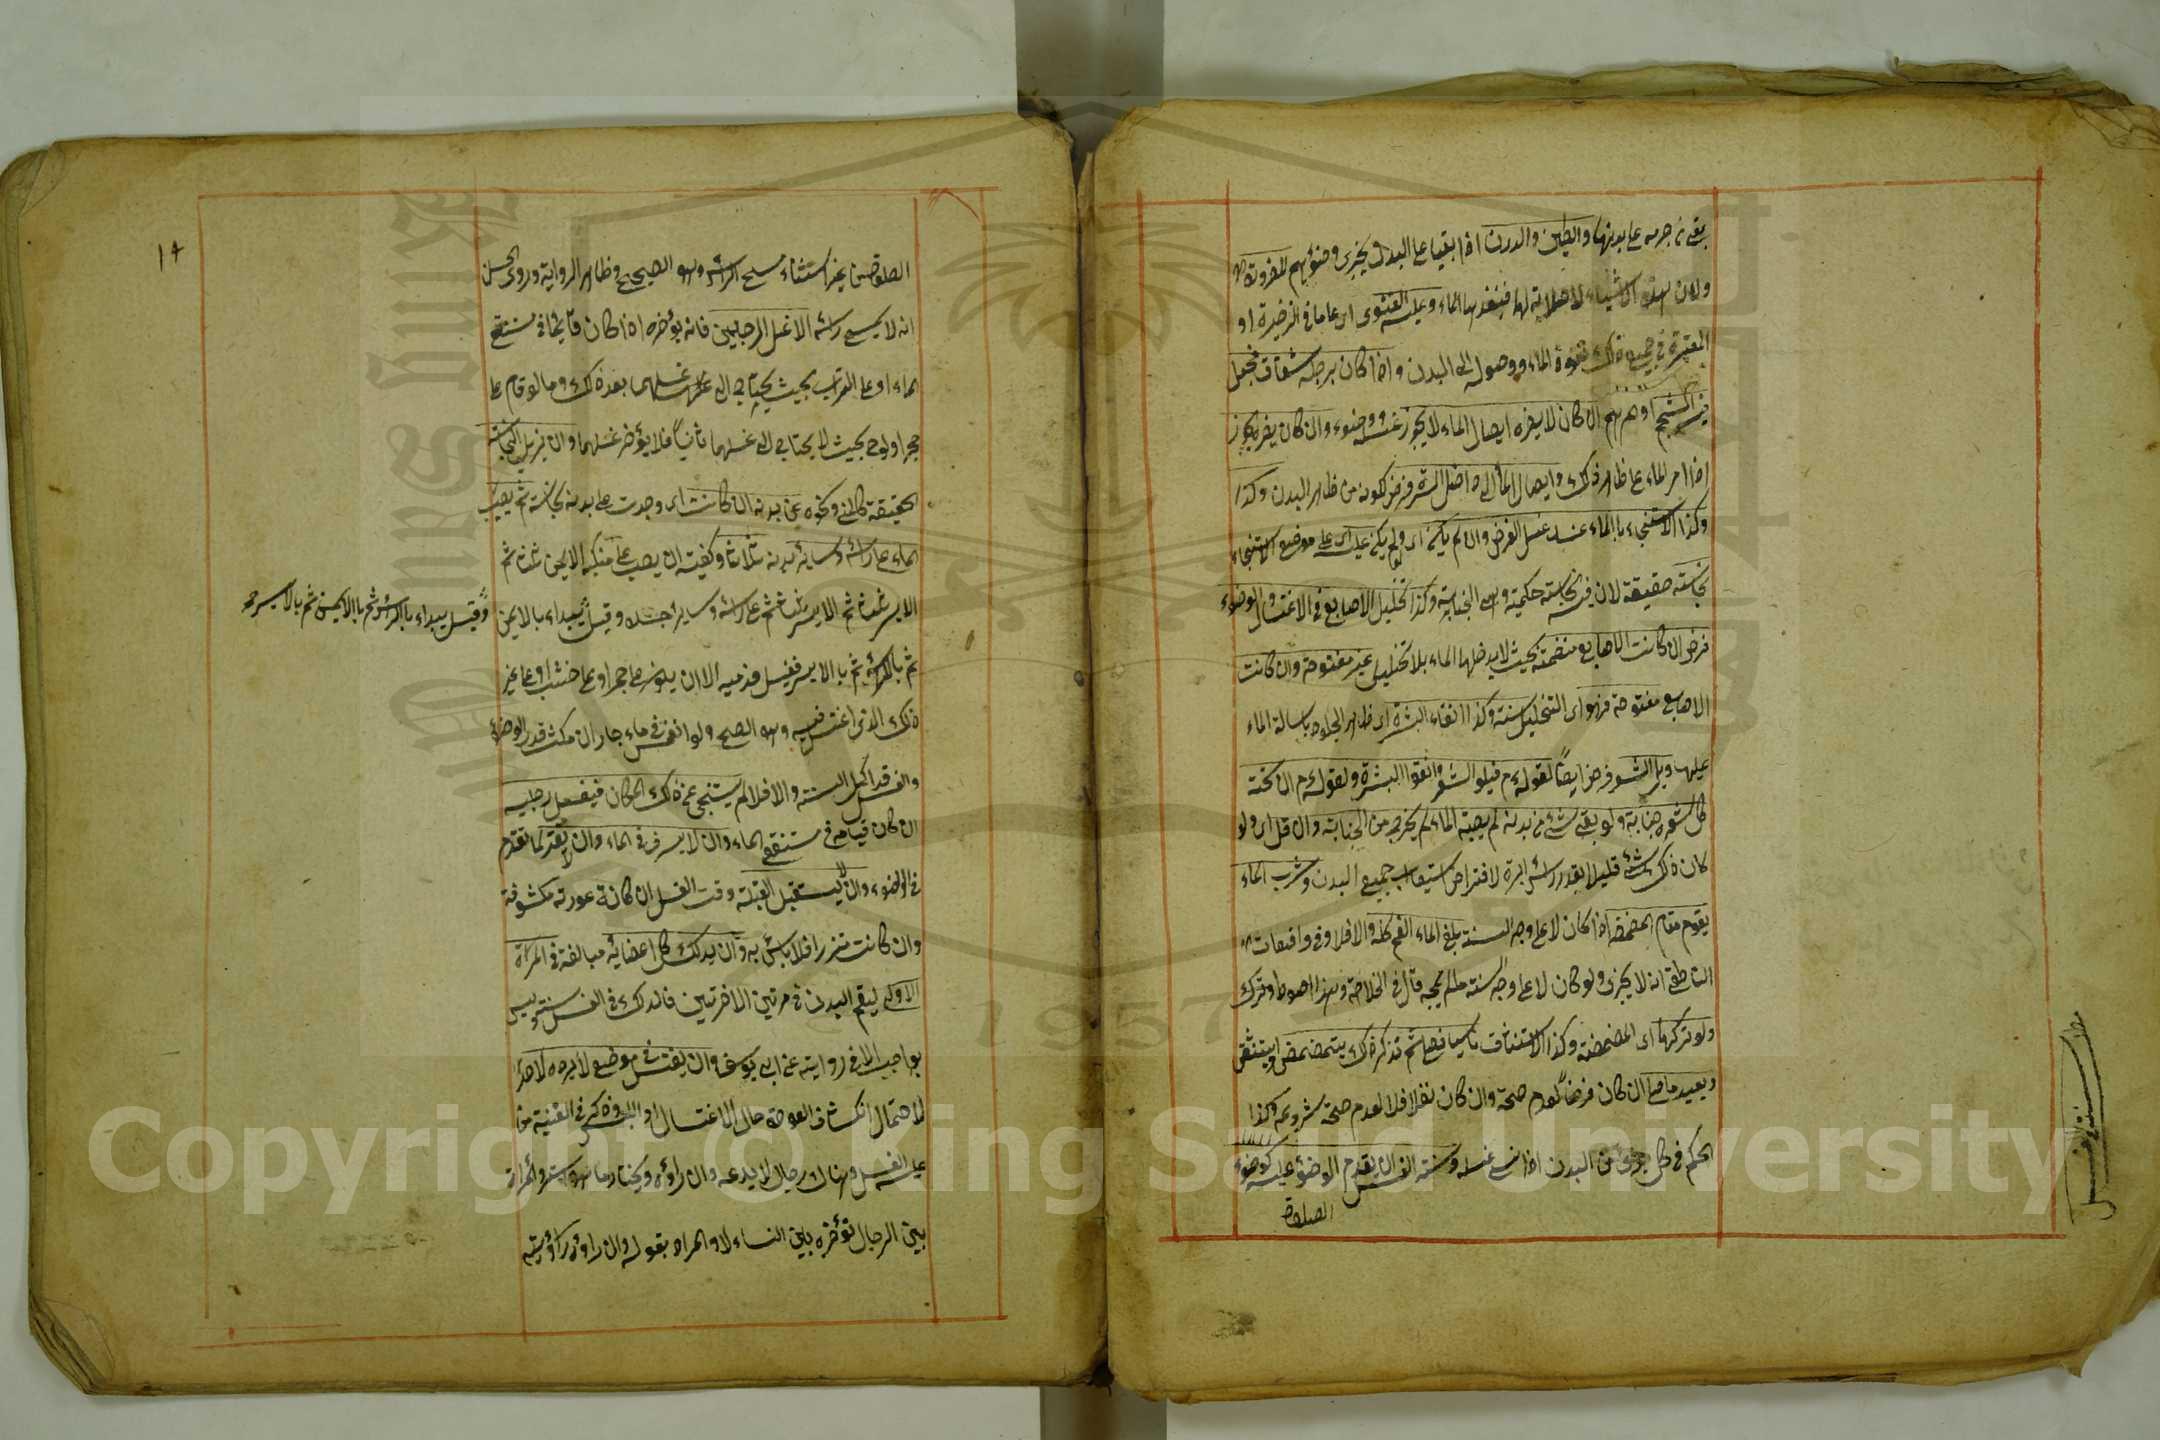 بقي من جرمه على بدنها والطين والدرن اذا بقيا على البدن يجزى وضوئهم للضرورة
ولان هذه الاشياء لا صلابة لها فينفذها الماء وعليه الفتوى اى على ما فى الذخيرة او
المعتبر فى جميع ذلك نفوذ الماء ووصوله الى البدن واذا كان برجله شقاق فجعل
فيه الشحم او المرهم ان كان لا يضره ايصال الماء لا يجوز غسله ووضوء وان كان يضره يجوز
اذا امر الماء على ظاهر ذلك وايصال الماء الى داخل السرة فرض لكونه من ظاهر البدن وكذا
وكذا الاستنجاء بالماء عند غسل الفرض وان لم يكن اى ولو لم يكن عليه اى على موضع الاستنجاء
نجاسة حقيقة لان فيه نجاسة حكمية وهى الجنابة وكذا تخليل الاصابع فى الاغتسال والوضوء
فرض ان كانت الاصابع منضمة بحيث لا يدخلها الماء بلا تخليل غير مفتوحة وان كانت
الاصابع مفتوحة فهو اى التخليل سنة وكذا انقاء البشرة اى ظاهر الجلود باسالة الماء
عليها وبل الشعر فرض ايضا لقوله م فبلوا الشعر وانقوا البشرة ولقوله م ان تحت
كل شعرة جنابة ولو بقى شئ من بدنه لم يصبه الماء لم يخرج من الجنابة وان قل اى ولو
كان ذلك الشئ قليلا بقدر رأس ابرة لافتراض استيعاب جميع البدن وشرب الماء
يقوم مقام المضمضة اذا كان لا على وجه السنة بلغ الماء الفم كله والا فلا وفى واقعات
الناطفى انه لا يجزى ولو كان لا على وجه السنة ما لم يمجه قال فى الخلاصة وهذا احوط وترك
ولو تركها اى المضمضة وكذا الاستنشاق ناسيا فصلى ثم تذكر ذلك يتمضمض او يستنشق
ويعيد ما صلى ان كان فرضا لعدم صحته وان كان نفلا فلا لعدم صحة شروعه وكذا
الحكم فى كل جزء من البدن اذا نسى غسله وسنة الغسل ان يقدم الوضوء عليه كوضوء
الصلوة
١٢
الصلوة من غير استثناء مسح الرأس وهو الصحيح وظاهر الرواية وروى الحسن
انه لا يمسح رأسه الا غسل الرجلين فانه يؤخره اذا كان قائما فى مستنقع
الماء او على التراب بحيث يحتاج الى غسلهما بعد ذلك وما لو قام على
حجر او لوح بحيث لا يحتاج الى غسلهما ثانيا فلا يؤخر غسلهما وان يزيل النجاسة
الحقيقة كالمنى ونحوه عن بدنه ان كانت اى وجدت على بدنه نجاسة ثم يصب
الماء على رأسه وسائر بدنه ثلاثا وكيفيته ان يصب على منكبه الايمن ثلاثا ثم
الايسر ثلاثا ثم على رأسه وسائر جسده وقيل يبداء بالايمن
وقيل يبداء بالرأس ثم بالايمن ثم بالايسر
ثم بالرأس ثم بالايسر فيغسل قدميه الا ان يكون على حجر او على خشب او على غير
ذلك الذى اغتسل فيه وهو الصحيح ولو انغمس فى ماء جار ان مكث قدر الوضوء
والغسل فقد اكمل السنة والا فلا ثم يتنحى عن ذلك المكان فيغسل رجليه
ان كان قيامه فى مستنقع الماء وان لا يسرف فى الماء وان لا يقتر لما تقدم
فى الوضوء وان لا يستقبل القبلة وقت الغسل ان كانت عورته مكشوفة
وان كانت متزرا فلا بأس به وان يدلك كل اعضائه مبالغة فى المرة
الاولى ليقم البدن فى مرتين الاخرتين فالدلك فى الغسل سنة وليس
بواجب الا فى رواية عن ابى يوسف وان يغتسل فى موضع لا يراه احد
لاحتمال انكشاف العورة حال الاغتسال او اللبس وذكر فى القنية من
عليه الغسل وهناك رجال لا يدعه وان رأوه ويختار ما هو استر والمرأة
بين الرجال تؤخره بين النساء لا والمراد بقوله وان رأوه رؤيته